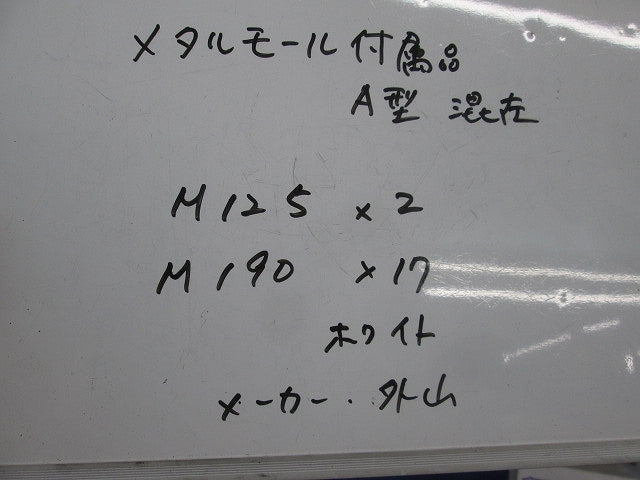 メタルモール付属品
A型 混在
M125 ×2
M190 ×17
ホワイト
メーカー・外山